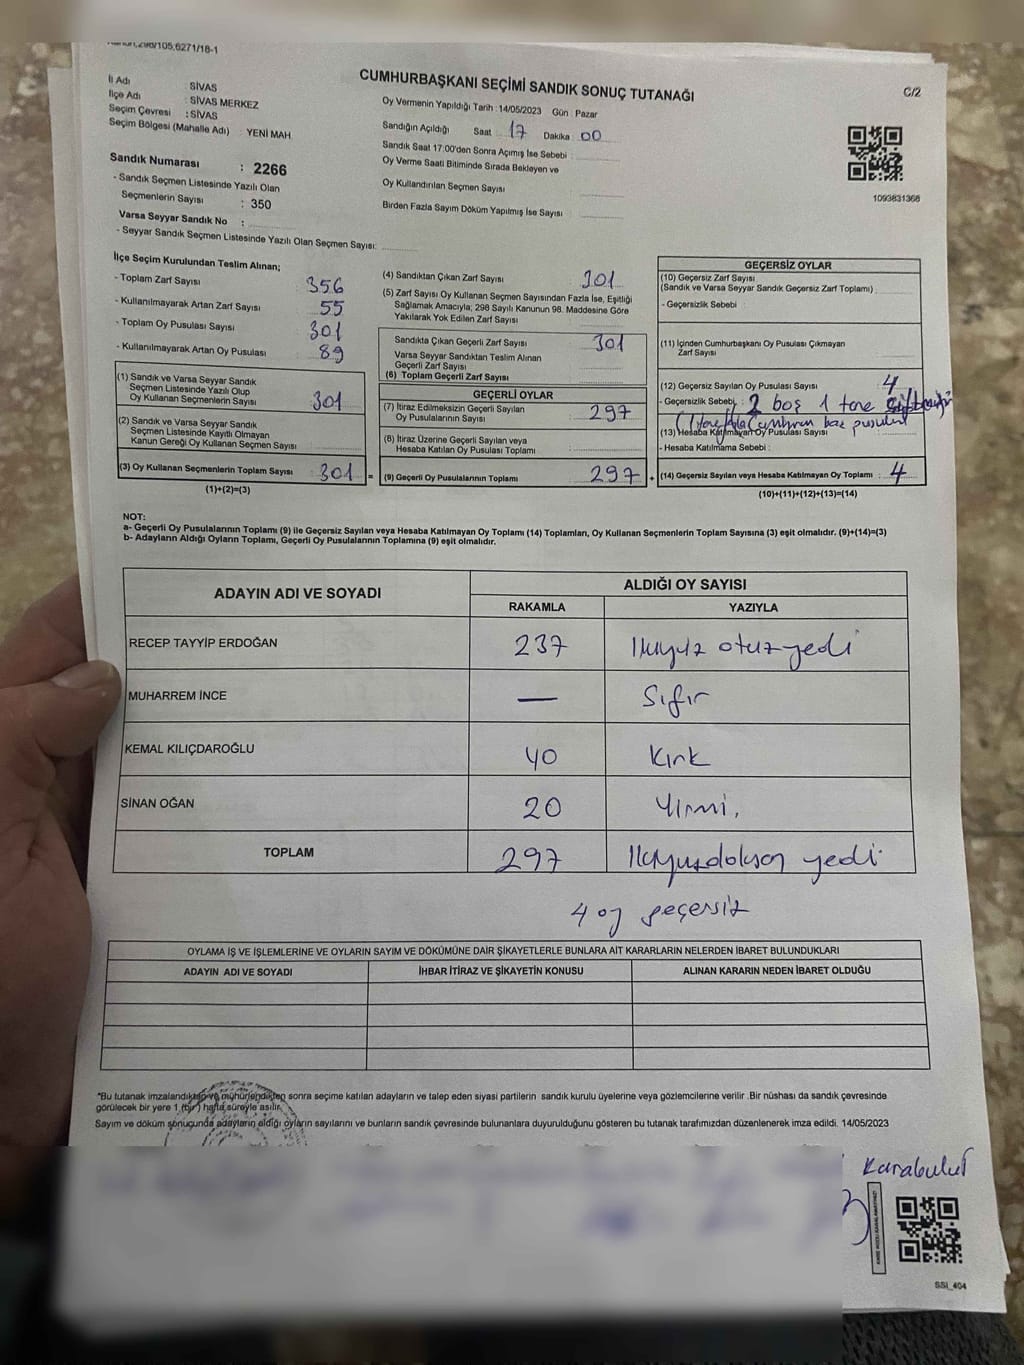 Kanun,298/105,6271/18-1
CUMHURBAŞKANI SEÇİMİ SANDIK SONUÇ TUTANAĞI
C/2
İl Adı : SİVAS
İlçe Adı : SİVAS MERKEZ
Seçim Çevresi : SİVAS
Seçim Bölgesi (Mahalle Adı) : YENİ MAH.
Sandık Numarası : 2266
- Sandık Seçmen Listesinde Yazılı Olan
Seçmenlerin Sayısı : 350
Varsa Seyyar Sandık No :
- Seyyar Sandık Seçmen Listesinde Yazılı Olan Seçmen Sayısı:
Oy Vermenin Yapıldığı Tarih : 14/05/2023 Gün : Pazar
Sandığın Açıldığı Saat 17 Dakika : 00
Sandık Saat 17:00'den Sonra Açımış İse Sebebi :
Oy Verme Saati Bitiminde Sırada Bekleyen ve
Oy Kullandırılan Seçmen Sayısı
Birden Fazla Sayım Döküm Yapılmış İse Sayısı
1093831366
İlçe Seçim Kurulundan Teslim Alınan;
- Toplam Zarf Sayısı 356
- Kullanılmayarak Artan Zarf Sayısı 55
- Toplam Oy Pusulası Sayısı 301
- Kullanılmayarak Artan Oy Pusulası 89
(1) Sandık ve Varsa Seyyar Sandık
Seçmen Listesinde Yazılı Olup
Oy Kullanan Seçmenlerin Sayısı 301
(2) Sandık ve Varsa Seyyar Sandık
Seçmen Listesinde Kayıtlı Olmayan
Kanun Gereği Oy Kullanan Seçmen Sayısı
(3) Oy Kullanan Seçmenlerin Toplam Sayısı 301 =
(1)+(2)=(3)
(4) Sandıktan Çıkan Zarf Sayısı 301
(5) Zarf Sayısı Oy Kullanan Seçmen Sayısından Fazla İse, Eşitliği
Sağlamak Amacıyla; 298 Sayılı Kanunun 98. Maddesine Göre
Yakılarak Yok Edilen Zarf Sayısı
Sandıkta Çıkan Geçerli Zarf Sayısı 301
Varsa Seyyar Sandıktan Teslim Alınan
Geçerli Zarf Sayısı
(6) Toplam Geçerli Zarf Sayısı
GEÇERLİ OYLAR
(7) İtiraz Edilmeksizin Geçerli Sayılan
Oy Pusulalarının Sayısı 297
(8) İtiraz Üzerine Geçerli Sayılan veya
Hesaba Katılan Oy Pusulası Toplamı
(9) Geçerli Oy Pusulalarının Toplamı 297 +
GEÇERSİZ OYLAR
(10) Geçersiz Zarf Sayısı
(Sandık ve Varsa Seyyar Sandık Geçersiz Zarf Toplamı)
- Geçersizlik Sebebi :
(11) İçinden Cumhurbaşkanı Oy Pusulası Çıkmayan
Zarf Sayısı
(12) Geçersiz Sayılan Oy Pusulası Sayısı : 4
- Geçersizlik Sebebi : 2 boş 1 tane
(13) Hesaba Katılmayan Oy Pusulası Sayısı
- Hesaba Katılmama Sebebi :
(14) Geçersiz Sayılan veya Hesaba Katılmayan Oy Toplamı : 4
(10)+(11)+(12)+(13)=(14)
NOT:
a- Geçerli Oy Pusulalarının Toplamı (9) ile Geçersiz Sayılan veya Hesaba Katılmayan Oy Toplamı (14) Toplamları, Oy Kullanan Seçmenlerin Toplam Sayısına (3) eşit olmalıdır. (9)+(14)=(3)
b- Adayların Aldığı Oyların Toplamı, Geçerli Oy Pusulalarının Toplamına (9) eşit olmalıdır.
ADAYIN ADI VE SOYADI
ALDIĞI OY SAYISI
RAKAMLA YAZIYLA
RECEP TAYYİP ERDOĞAN 237 İkiyüz otuz yedi
MUHARREM İNCE — Sıfır
KEMAL KILIÇDAROĞLU 40 Kırk
SİNAN OĞAN 20 Yirmi.
TOPLAM 297 İkiyüzdoksan yedi
4 oy geçersiz
OYLAMA İŞ VE İŞLEMLERİNE VE OYLARIN SAYIM VE DÖKÜMÜNE DAİR ŞİKAYETLERLE BUNLARA AİT KARARLARIN NELERDEN İBARET BULUNDUKLARI
ADAYIN ADI VE SOYADI İHBAR İTİRAZ VE ŞİKAYETİN KONUSU ALINAN KARARIN NEDEN İBARET OLDUĞU
"Bu tutanak imzalandıktan ve mühürlendikten sonra seçime katılan adayların ve talep eden siyasi partilerin sandık kurulu üyelerine veya gözlemcilerine verilir .Bir nüshası da sandık çevresinde
görülecek bir yere 1 (bir) hafta süreyle asılır.
Sayım ve döküm sonucunda adayların aldığı oyların sayılarını ve bunların sandık çevresinde bulunanlara duyurulduğunu gösteren bu tutanak tarafımızdan düzenlenerek imza edildi. 14/05/2023
Karabulut
SSI_404